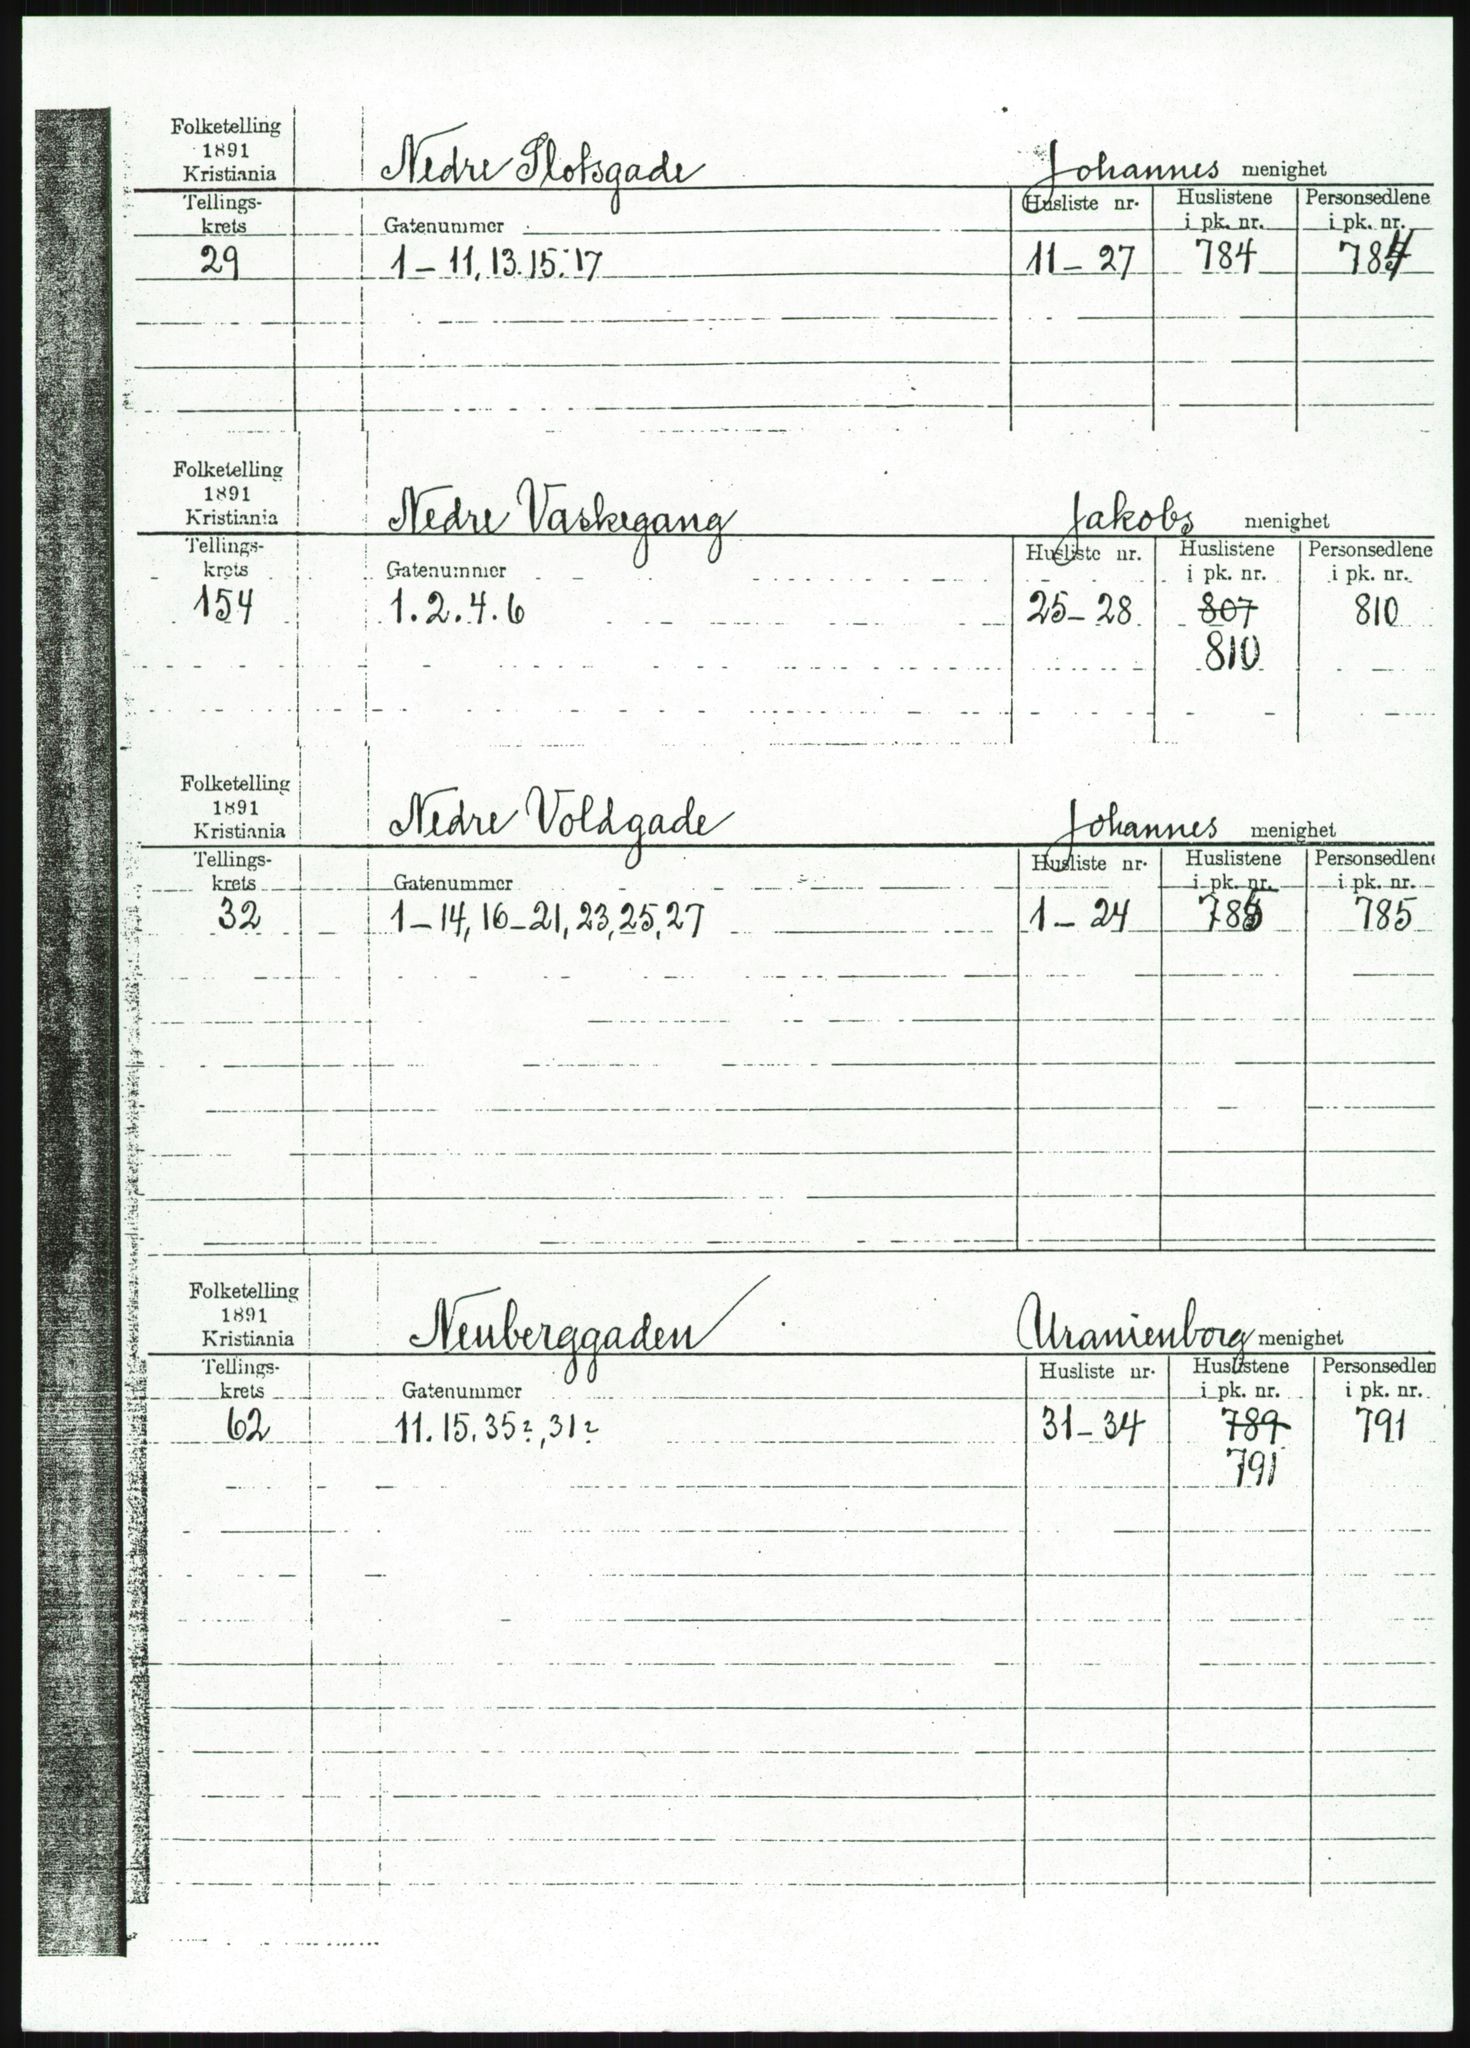 Folketelling
1891
Kristiania
Nedre Slotsgade
Johannes menighet
Tellings-
krets
Gatenummer
Husliste nr.
Huslistene
i pk. nr.
Personsedlene
i pk. nr.
29
1 - 11, 13. 15. 17
11 - 27
784
784
Folketelling
1891
Kristiania
Nedre Vaskegang
Jakobs menighet
Tellings-
krets
Gatenummer
Husliste nr.
Huslistene
i pk. nr.
Personsedlene
i pk. nr.
154
1. 2. 4. 6
25 - 28
807
810
810
Folketelling
1891
Kristiania
Nedre Voldgade
Johannes menighet
Tellings-
krets
Gatenummer
Husliste nr.
Huslistene
i pk. nr.
Personsedlene
i pk. nr.
32
1 - 14, 16 - 21, 23, 25, 27
1 - 24
785
785
Folketelling
1891
Kristiania
Neuberggaden
Uranienborg menighet
Tellings-
krets
Gatenummer
Husliste nr.
Huslistene
i pk. nr.
Personsedlen
i pk. nr.
62
11. 15. 35?, 31?
31 - 34
789
791
791